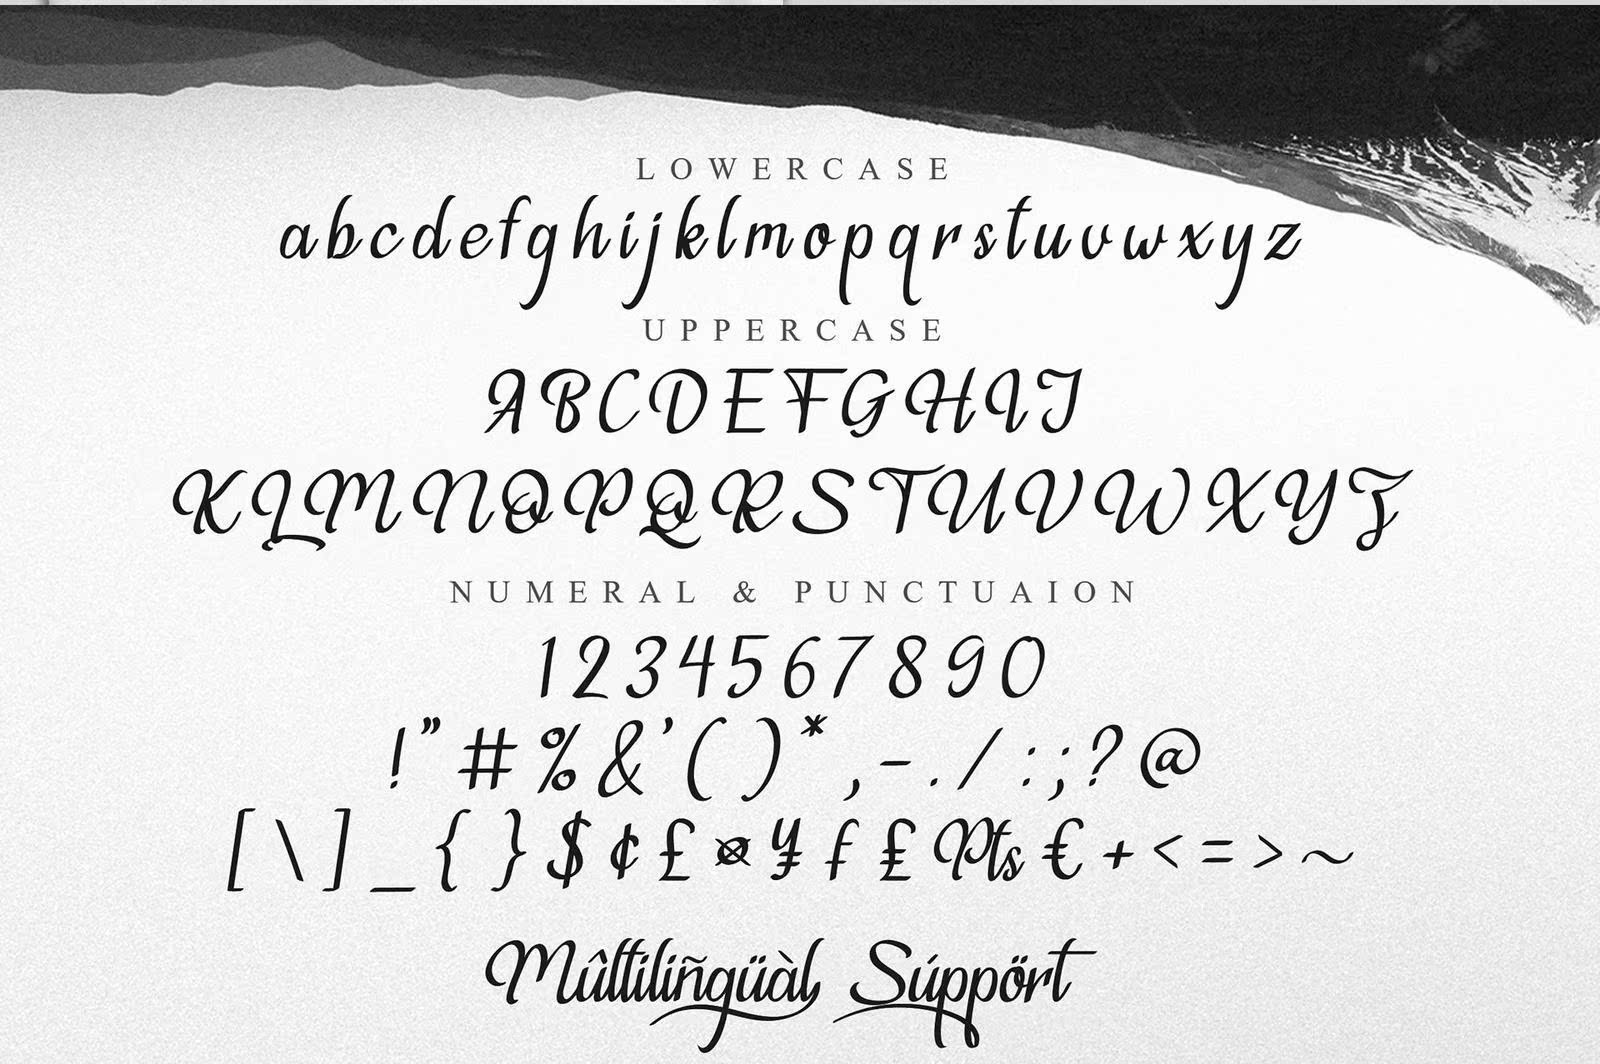 LOWERCASE
abcdefghijklmopqrstuvwxyz
UPPERCASE
ABCDEFGHIJ
KLMNOPQRSTUVWXYZ
NUMERAL & PUNCTUAION
1234567890
!”#%&’()*,-./:;?@
[\]_{}$¢£¤¥ƒ₤₧€+<=>~
Mûltiliñgüàl Súppört